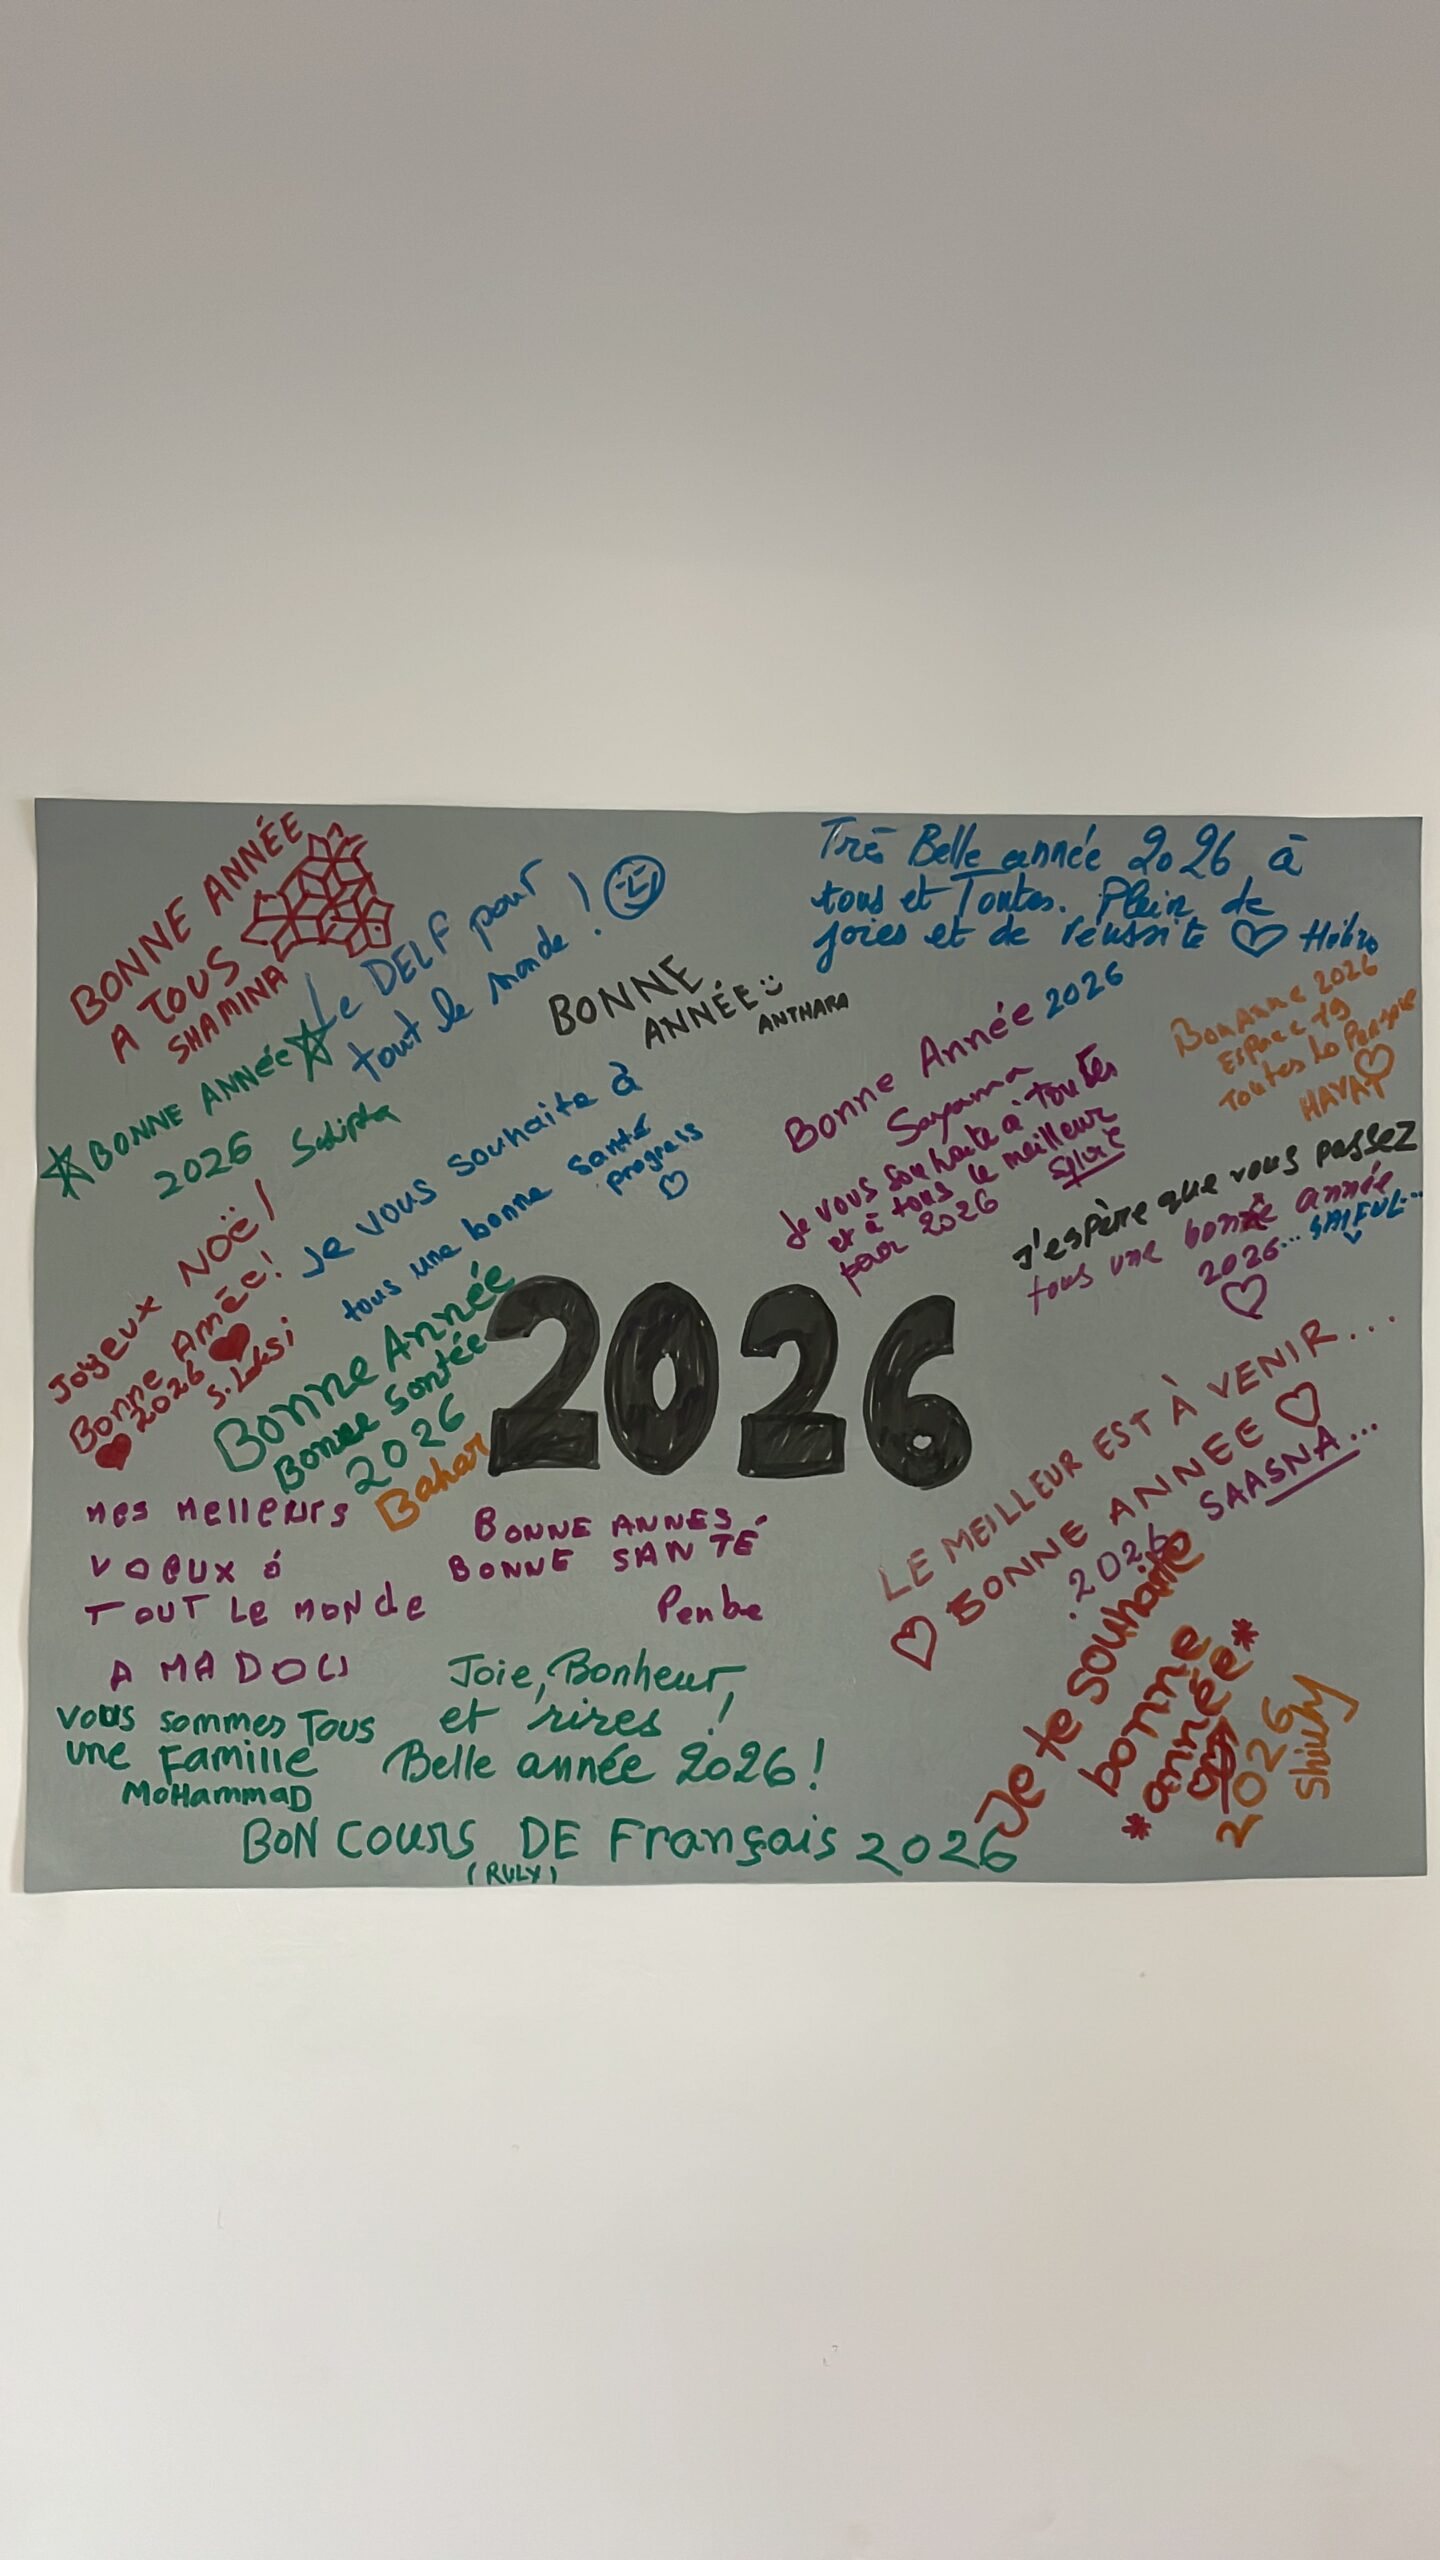 BONNE ANNÉE
A TOUS
SHAMINA
Le DELF pour
tout le monde !
BONNE
ANNÉE
ANTHARA
Très Belle année 2026 à
tous et Toutes. Plein de
joies et de réussite
Bonne Année 2026
Sayama
BonAnne 2026
ESPace 19
Toutes Lo
HAYAT
BONNE ANNÉE
2026
Je vous souhaite à
tous une bonne santé
progress
Je vous souhaite à toutes
et à tous le meilleur
pour 2026
Sylvie
J'espère que vous passez
tous une bonne année
2026... SAIFUL...
Joyeux NOËL!
Bonne Année!
2026
S. Laksi
Bonne Année
Bonne Sontée
2026
Bahar
2026
LE MEILLEUR EST À VENIR...
BONNE ANNEE
.2026 SAASNA...
mes melleurs
voeux á
TOUT Le MONde
AMADOU
BONNE ANNES
BONNE SANTÉ
Penbe
vous sommes Tous
une Famille
MoHammaD
Joie, Bonheur,
et rires !
Belle année 2026 !
Je te souhaite
bonne
*année*
2026
Shiuly
BON COURS DE Français 2026
(RULY)